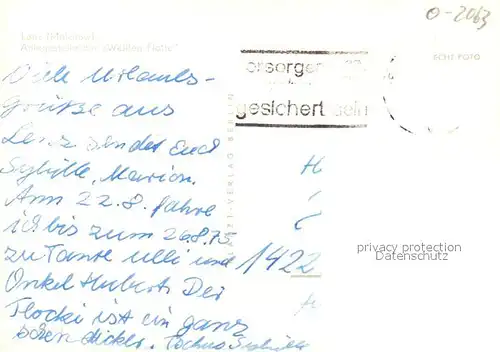 O-2063
Lenz (Meckenb.)
ECHT FOTO
vorsorgen
gesichert sein
Viele Urlaubs-
Grüße aus
Lenz sendet Euch
Sybille, Marion.
Am 22.8. fahre
ich bis zum 26.8.75
zu Tante Ulli und
Onkel Hubert. Der
Flocki ist ein ganz
schön dicker. Tschüs Sybille
1422
privacy protection
Datenschutz